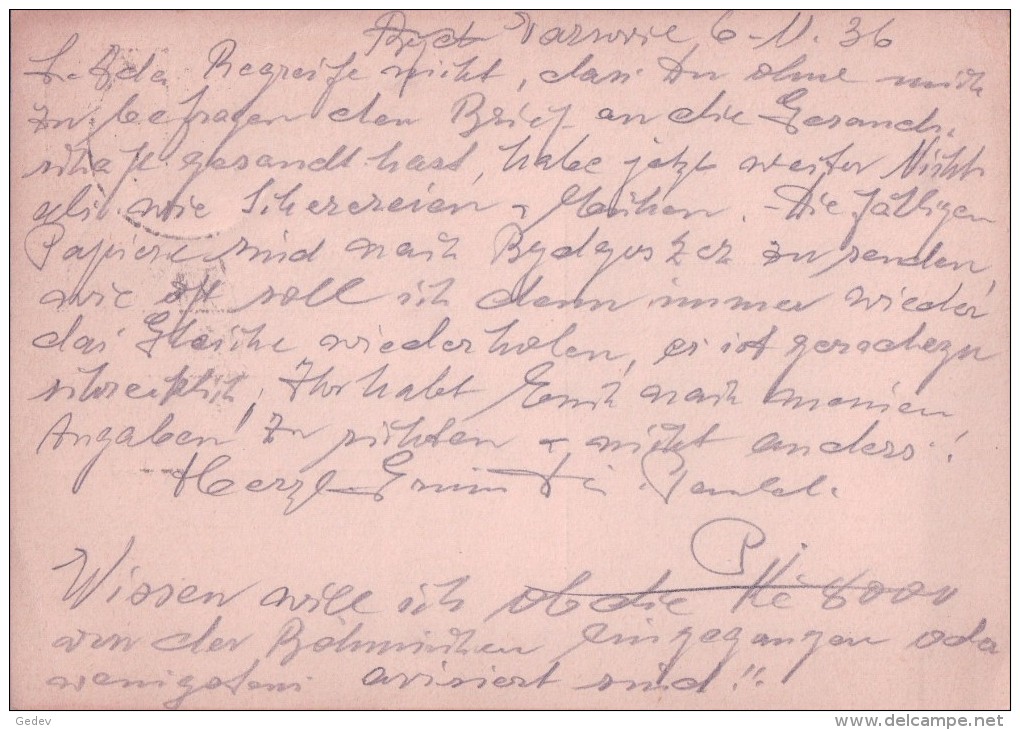 Varsovie, 6-11.36
Begreife nicht, dass Du ohne mich
zu befragen den Brief an die Gesand-
schaft gesandt hast, habe jetzt weiter Nichts
als wie Scherereien & Mühen. Die fälligen
Papiere sind nach Bydgoszcz zu senden
wie oft soll ich denn immer wieder
das Gleiche wiederholen, es ist geradezu
schrecklich, Ihr habt Euch nach meinen
Angaben zu richten & nicht anders!
Herzl.
Wissen will ich ob die Kč 8000
von der Böhmischen eingegangen oder
wenigstens avisiert sind!!
Gedev
www.delcampe.net